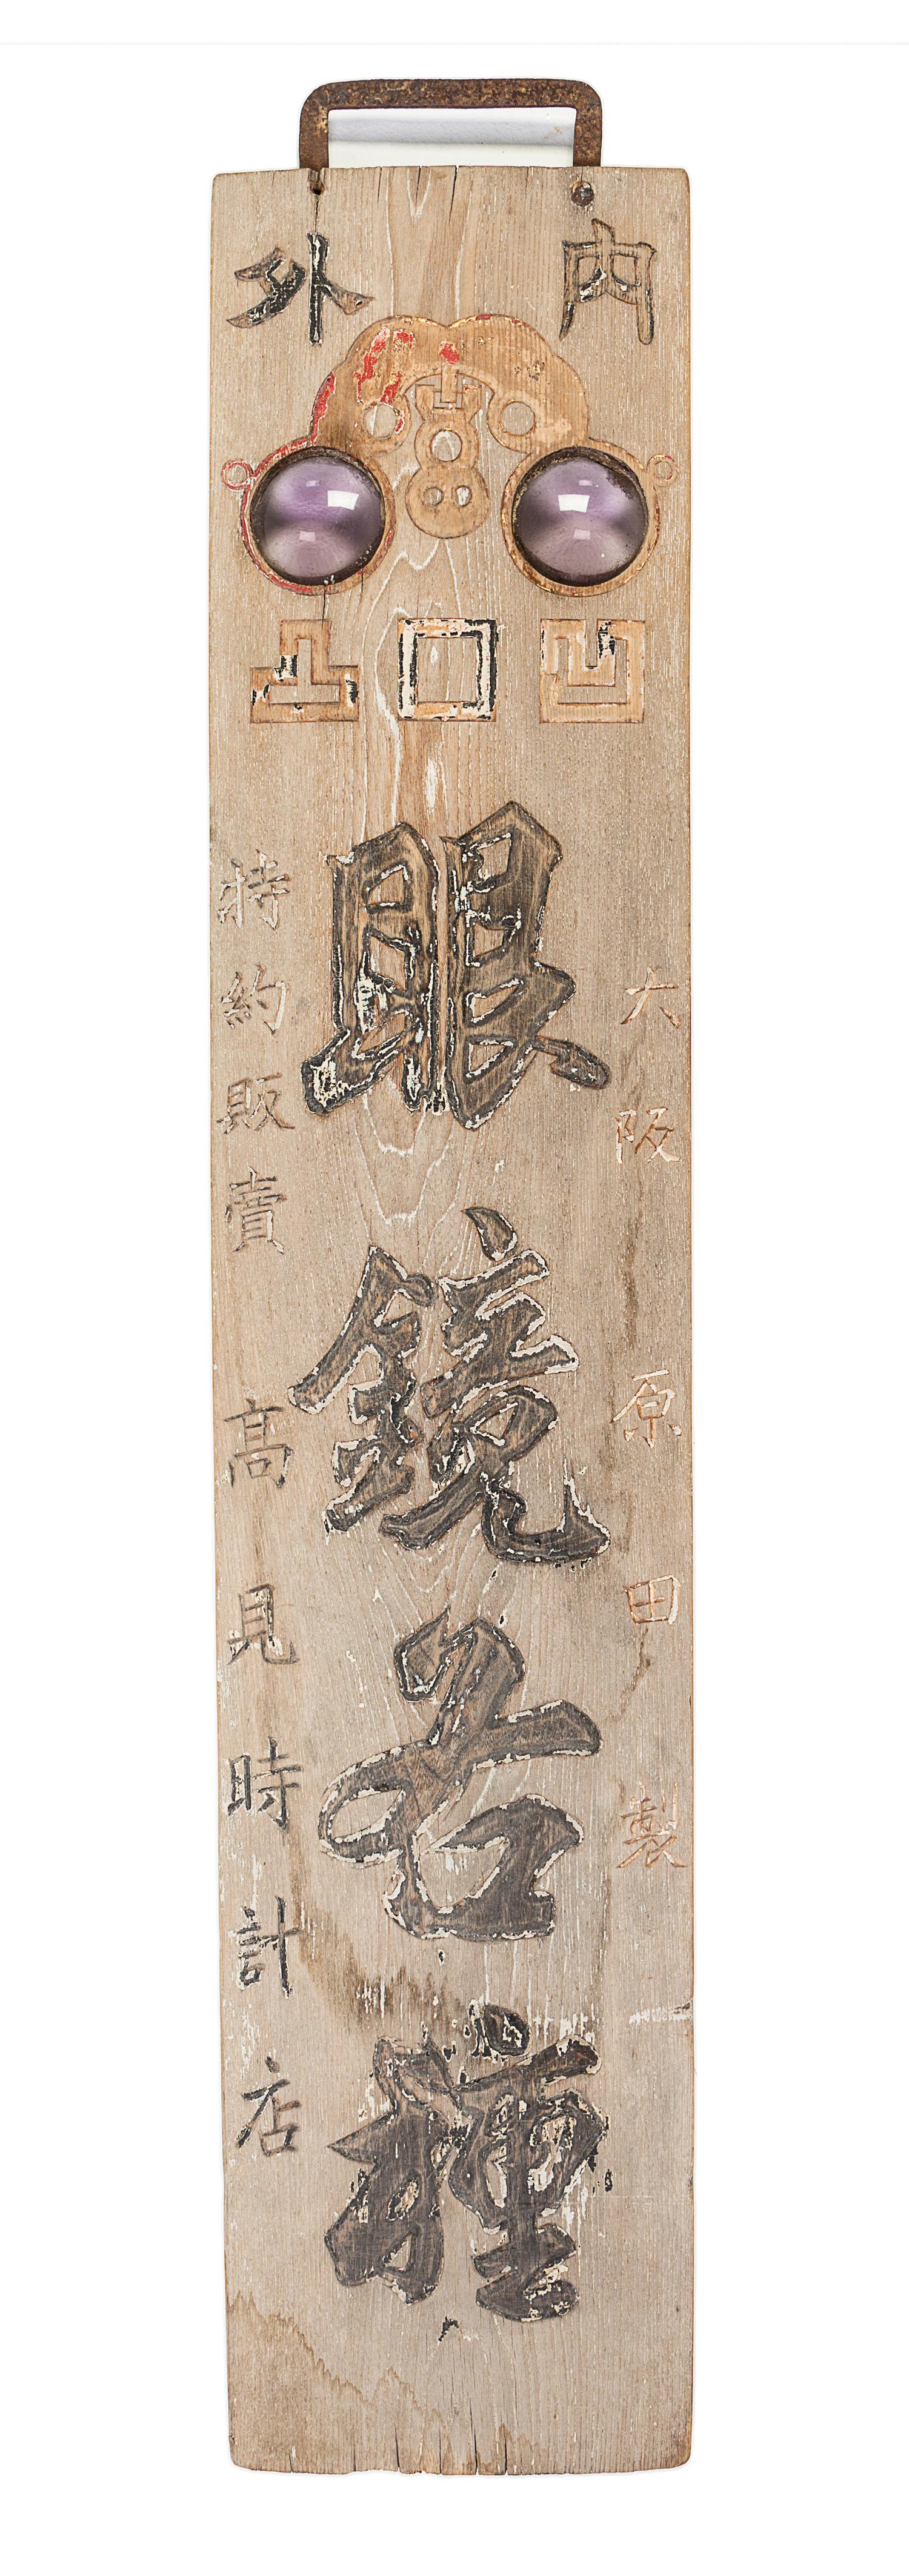 内外
凹口凸
大阪 原田製
眼鏡各種
特約販賣 高見時計店